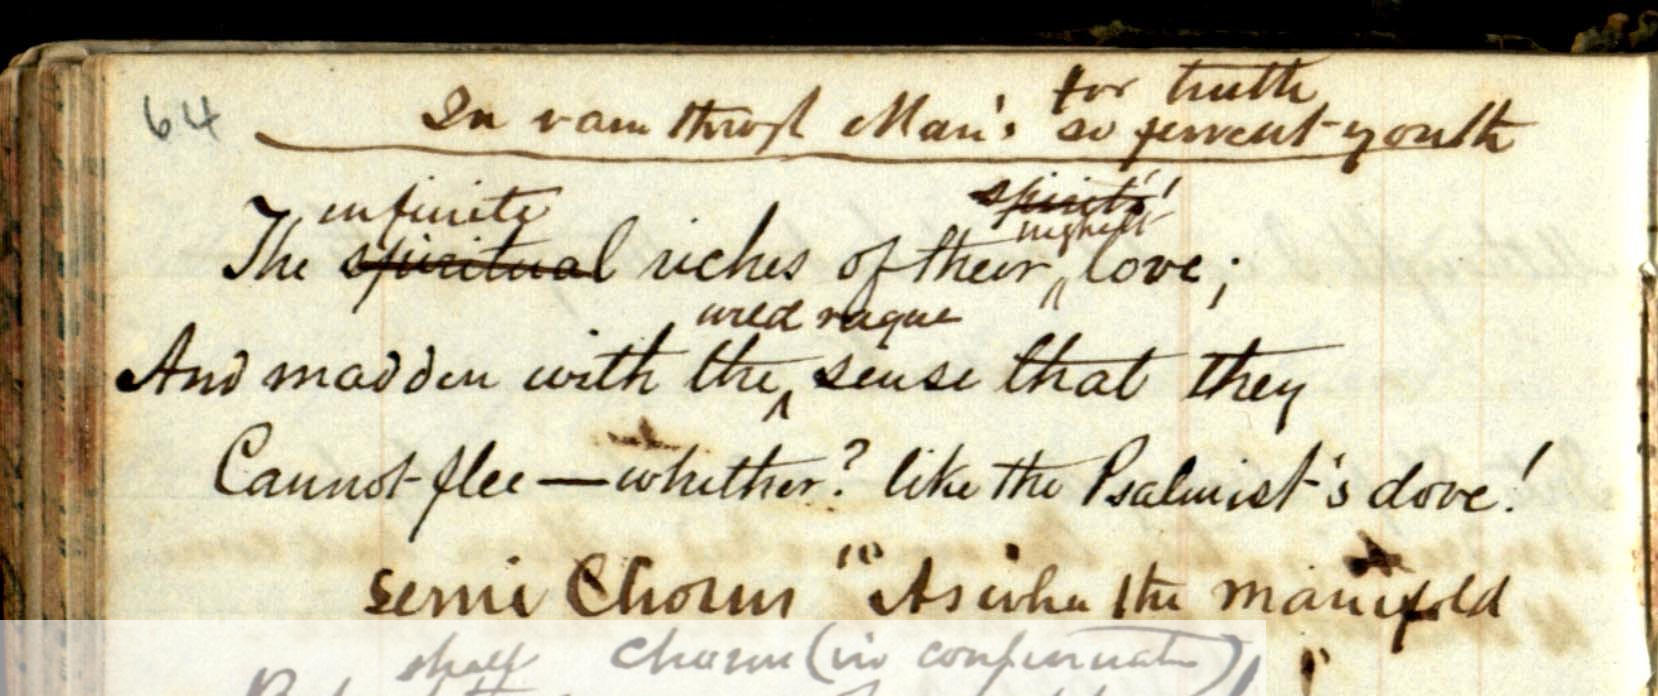 64
for truth
In vain through Man's so fervent youth
infinite spirits'
highest
The spiritual riches of their love;
wild vague
And madden with the sense that they
Cannot flee — whither? like the Psalmist's dove!
Semi Chorus "As when the manifold
shall Chorus (in confirmation)